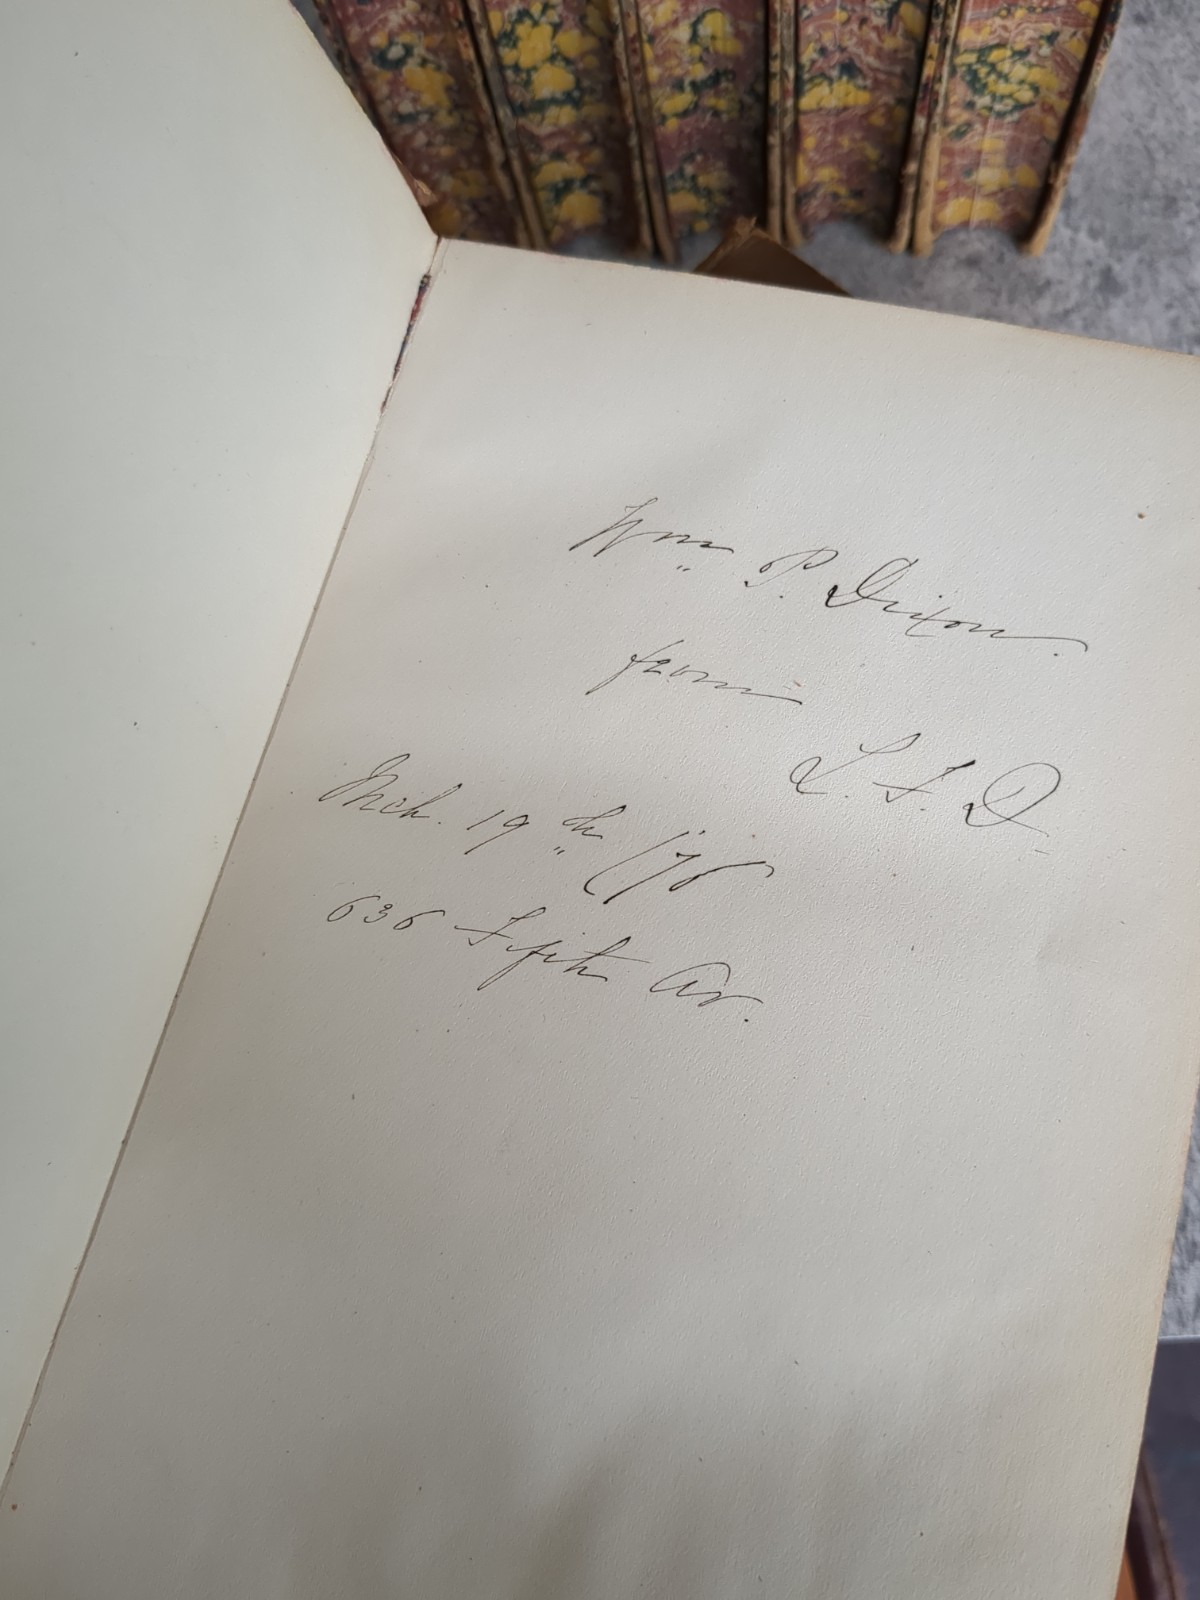 Wm. P. Dixon.
from
L. F. D.
Mch. 19th /76
636 Fifth Av.